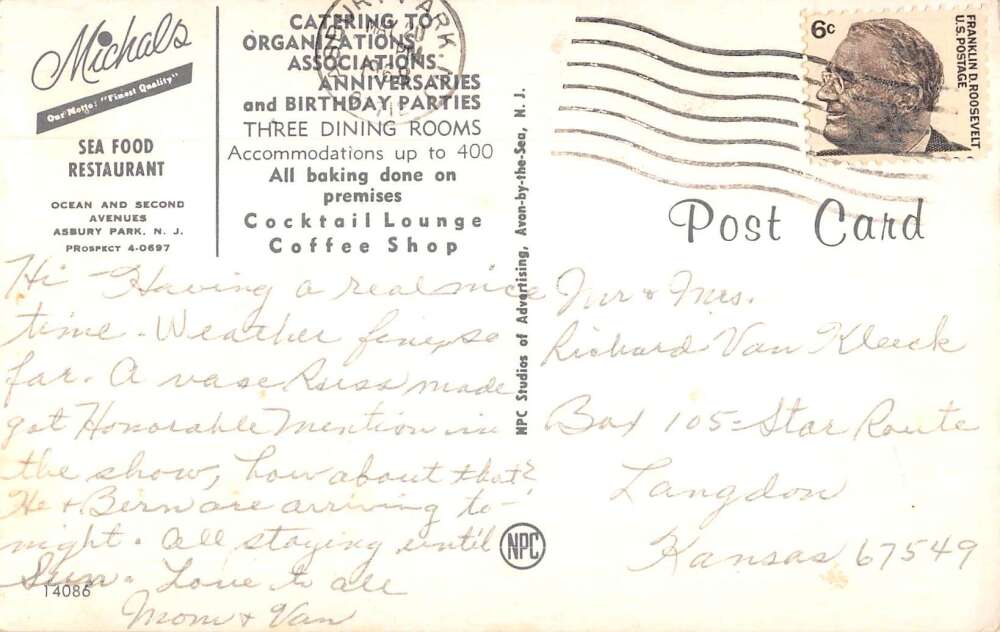 Michals
Our Motto: "Finest Quality"
SEA FOOD
RESTAURANT
OCEAN AND SECOND
AVENUES
ASBURY PARK, N. J.
PROSPECT 4-0697
CATERING TO
ORGANIZATIONS
ASSOCIATIONS
ANNIVERSARIES
and BIRTHDAY PARTIES
THREE DINING ROOMS
Accommodations up to 400
All baking done on
premises
Cocktail Lounge
Coffee Shop
Hi - Having a real nice
time. Weather fine so
far. A vase Russ made
got Honorable Mention in
the show, how about that?
He + Bern are arriving to-
night. All staying until
Sun. Love to all
Mom + Van
14086
NPC Studios of Advertising, Avon-by-the-Sea, N. J.
NPC
6c
FRANKLIN D. ROOSEVELT
U.S. POSTAGE
Post Card
Mr & Mrs.
Richard Van Kleeck
Box 105 - Star Route
Langdon
Kansas 67549